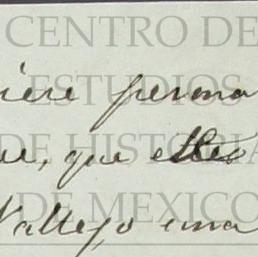 CENTRO DE
ESTUDIOS
DE HISTORIA
DE MEXICO
iere persona
ue, que ellos
Vallejo una